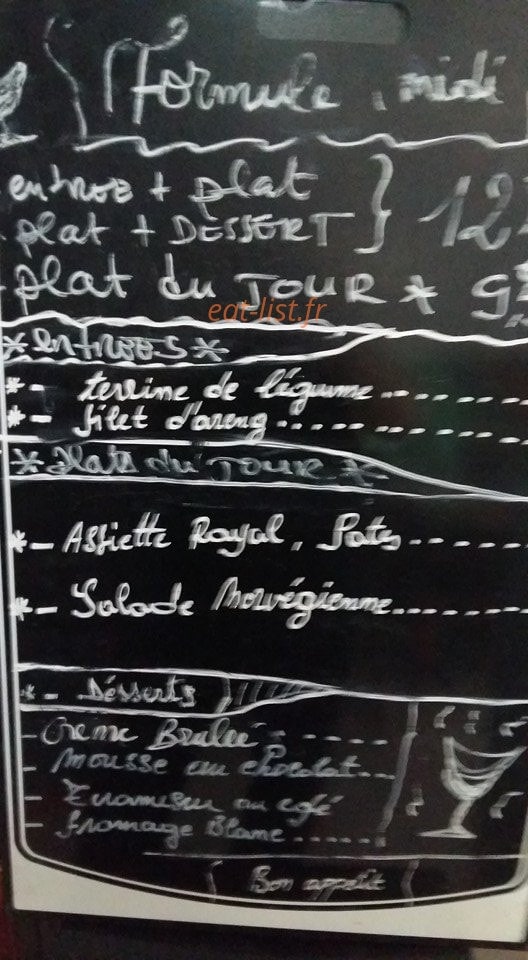 Formule midi
entrée + plat
plat + DESSERT } 12
plat du JOUR * 9
eat-list.fr
*entrées*
*- terrine de légume.......
*- filet d'areng...........
*Plats du JOUR *
*- Assiette Royal, Pates.......
*- Salade Norvégienne.......
*- Désserts
- Crème Brulée - - - - -
- Mousse au chocolat...
- Tiramisu au café
- fromage Blanc.......
Bon appétit